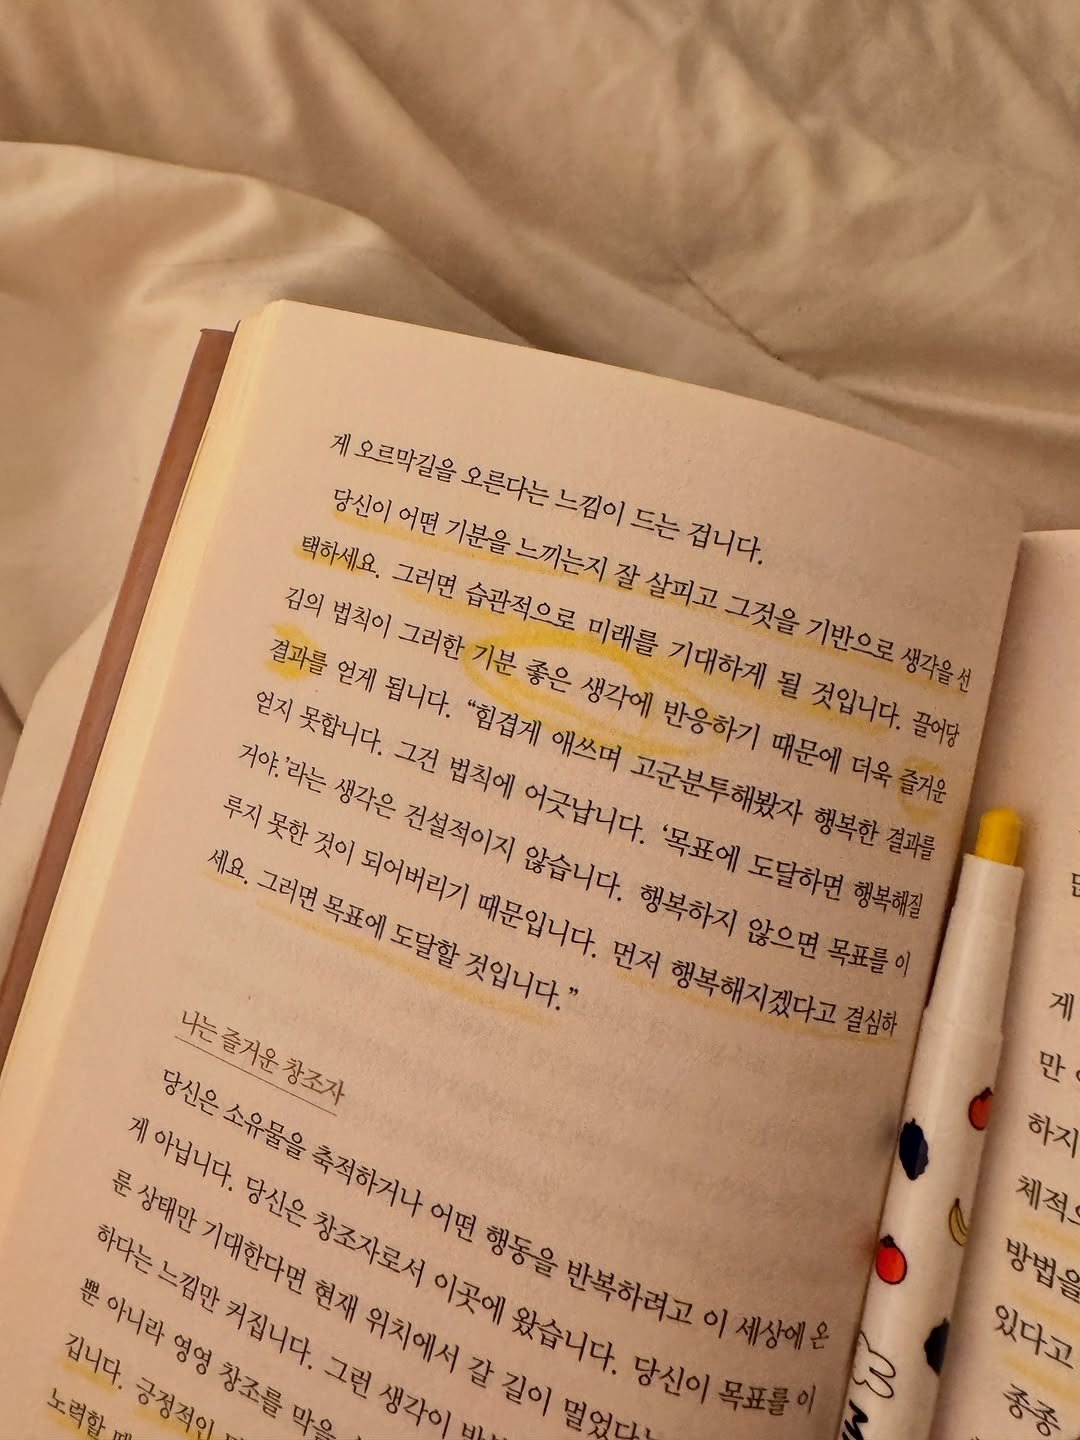 게 오르막길을 오른다는 느낌이 드는 겁니다.
당신이 어떤 기분을 느끼는지 잘 살피고 그것을 기반으로 생각을 선
택하세요. 그러면 습관적으로 미래를 기대하게 될 것입니다. 끌어당
김의 법칙이 그러한 기분 좋은 생각에 반응하기 때문에 더욱 즐거운
결과를 얻게 됩니다. “힘겹게 애쓰며 고군분투해봤자 행복한 결과를
얻지 못합니다. 그건 법칙에 어긋납니다. ‘목표에 도달하면 행복해질
거야.’라는 생각은 건설적이지 않습니다. 행복하지 않으면 목표를 이
루지 못한 것이 되어버리기 때문입니다. 먼저 행복해지겠다고 결심하
세요. 그러면 목표에 도달할 것입니다.”
나는 즐거운 창조자
당신은 소유물을 축적하거나 어떤 행동을 반복하려고 이 세상에 온
게 아닙니다. 당신은 창조자로서 이곳에 왔습니다. 당신이 목표를 이
룬 상태만 기대한다면 현재 위치에서 갈 길이 멀었다는
하다는 느낌만 커집니다. 그런 생각이
뿐 아니라 영영 창조를 막을
깁니다. 긍정적인
노력할 때
게
만
하지
체적으
방법을
있다고
종종